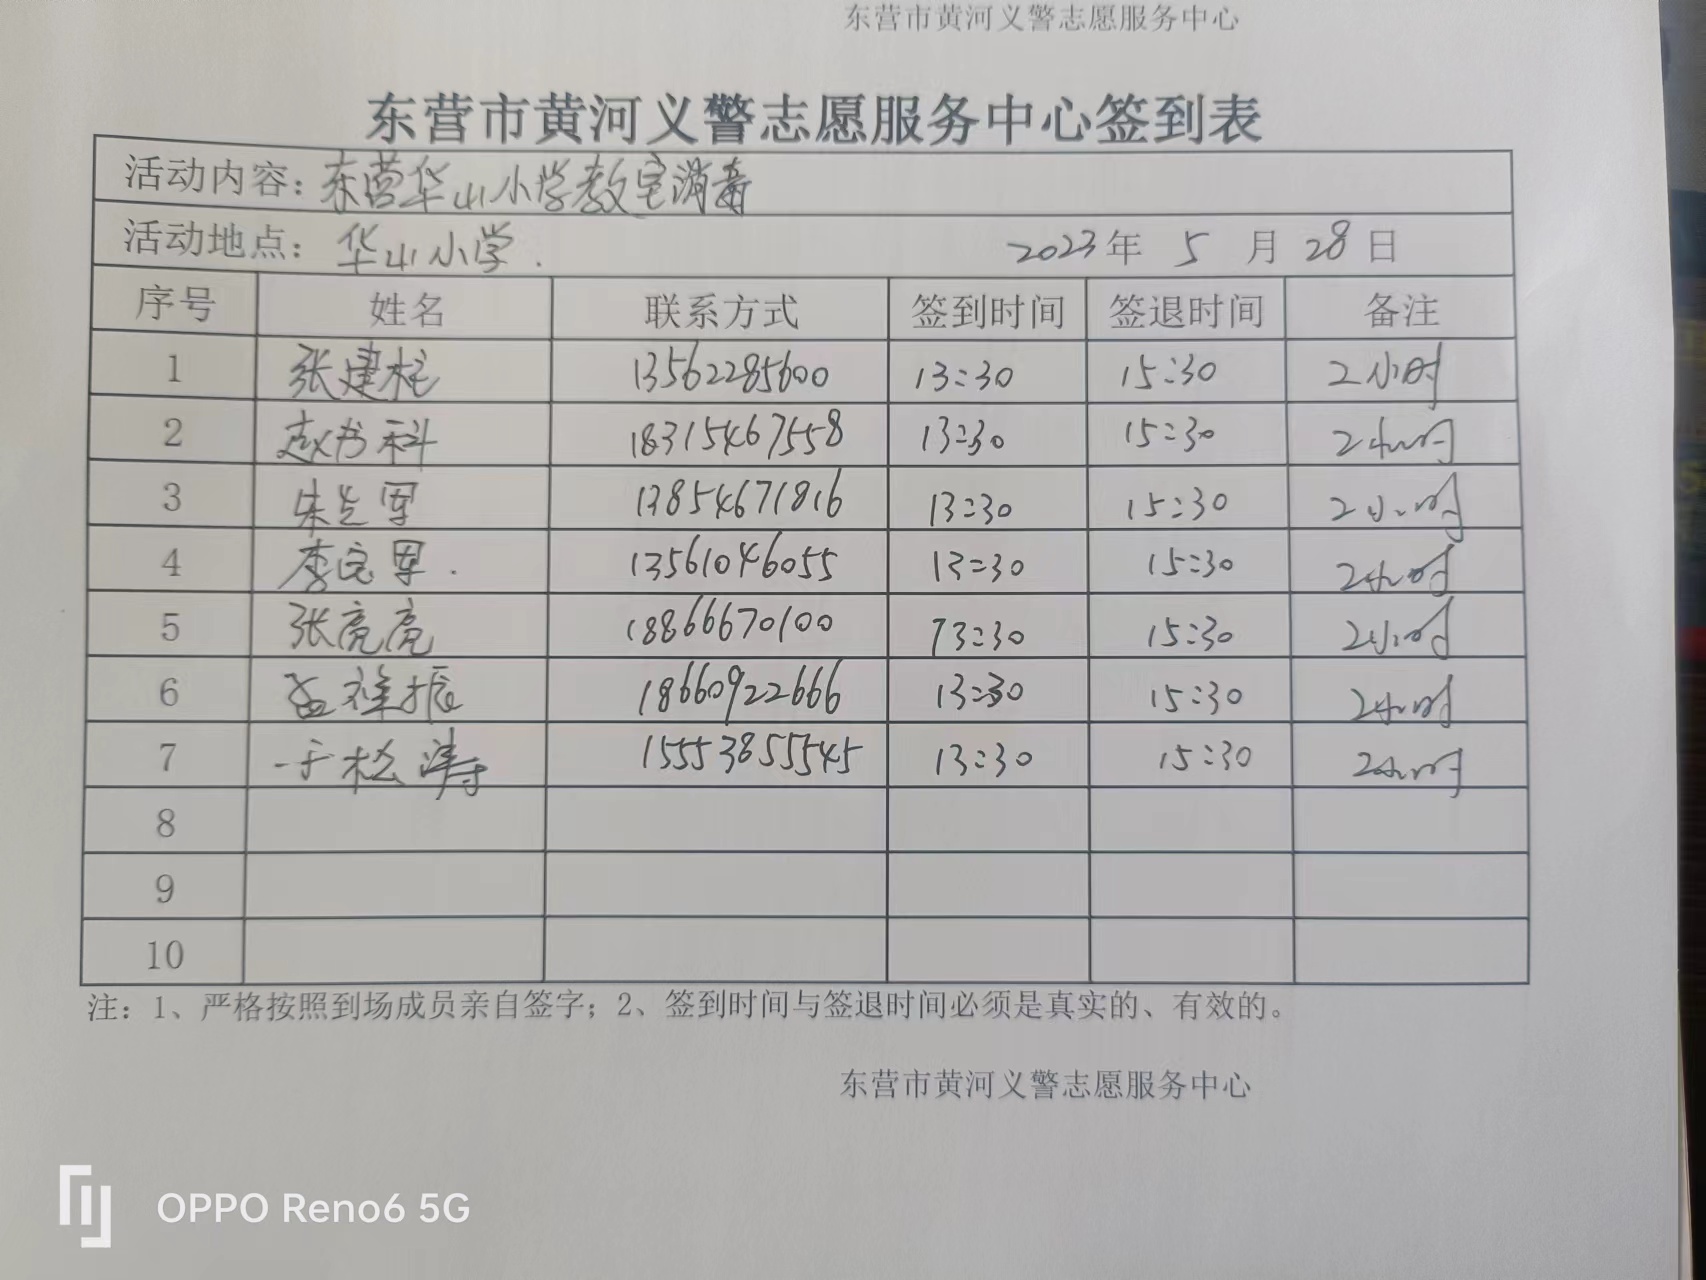 东营市黄河义警志愿服务中心
东营市黄河义警志愿服务中心签到表
活动内容：东营华山小学教室消毒
活动地点：华山小学. 2023年 5 月 28 日
序号 姓名 联系方式 签到时间 签退时间 备注
1 张建柱 13562285600 13:30 15:30 2小时
2 赵书科 18315467558 13:30 15:30 2小时
3 朱先军 13854671816 13:30 15:30 2小时
4 李定军. 13561046055 13:30 15:30 2小时
5 张亮亮 18866670100 13:30 15:30 2小时
6 孟祥振 18660922666 13:30 15:30 2小时
7 于松涛 15553855545 13:30 15:30 2小时
8
9
10
注：1、严格按照到场成员亲自签字；2、签到时间与签退时间必须是真实的、有效的。
东营市黄河义警志愿服务中心
OPPO Reno6 5G